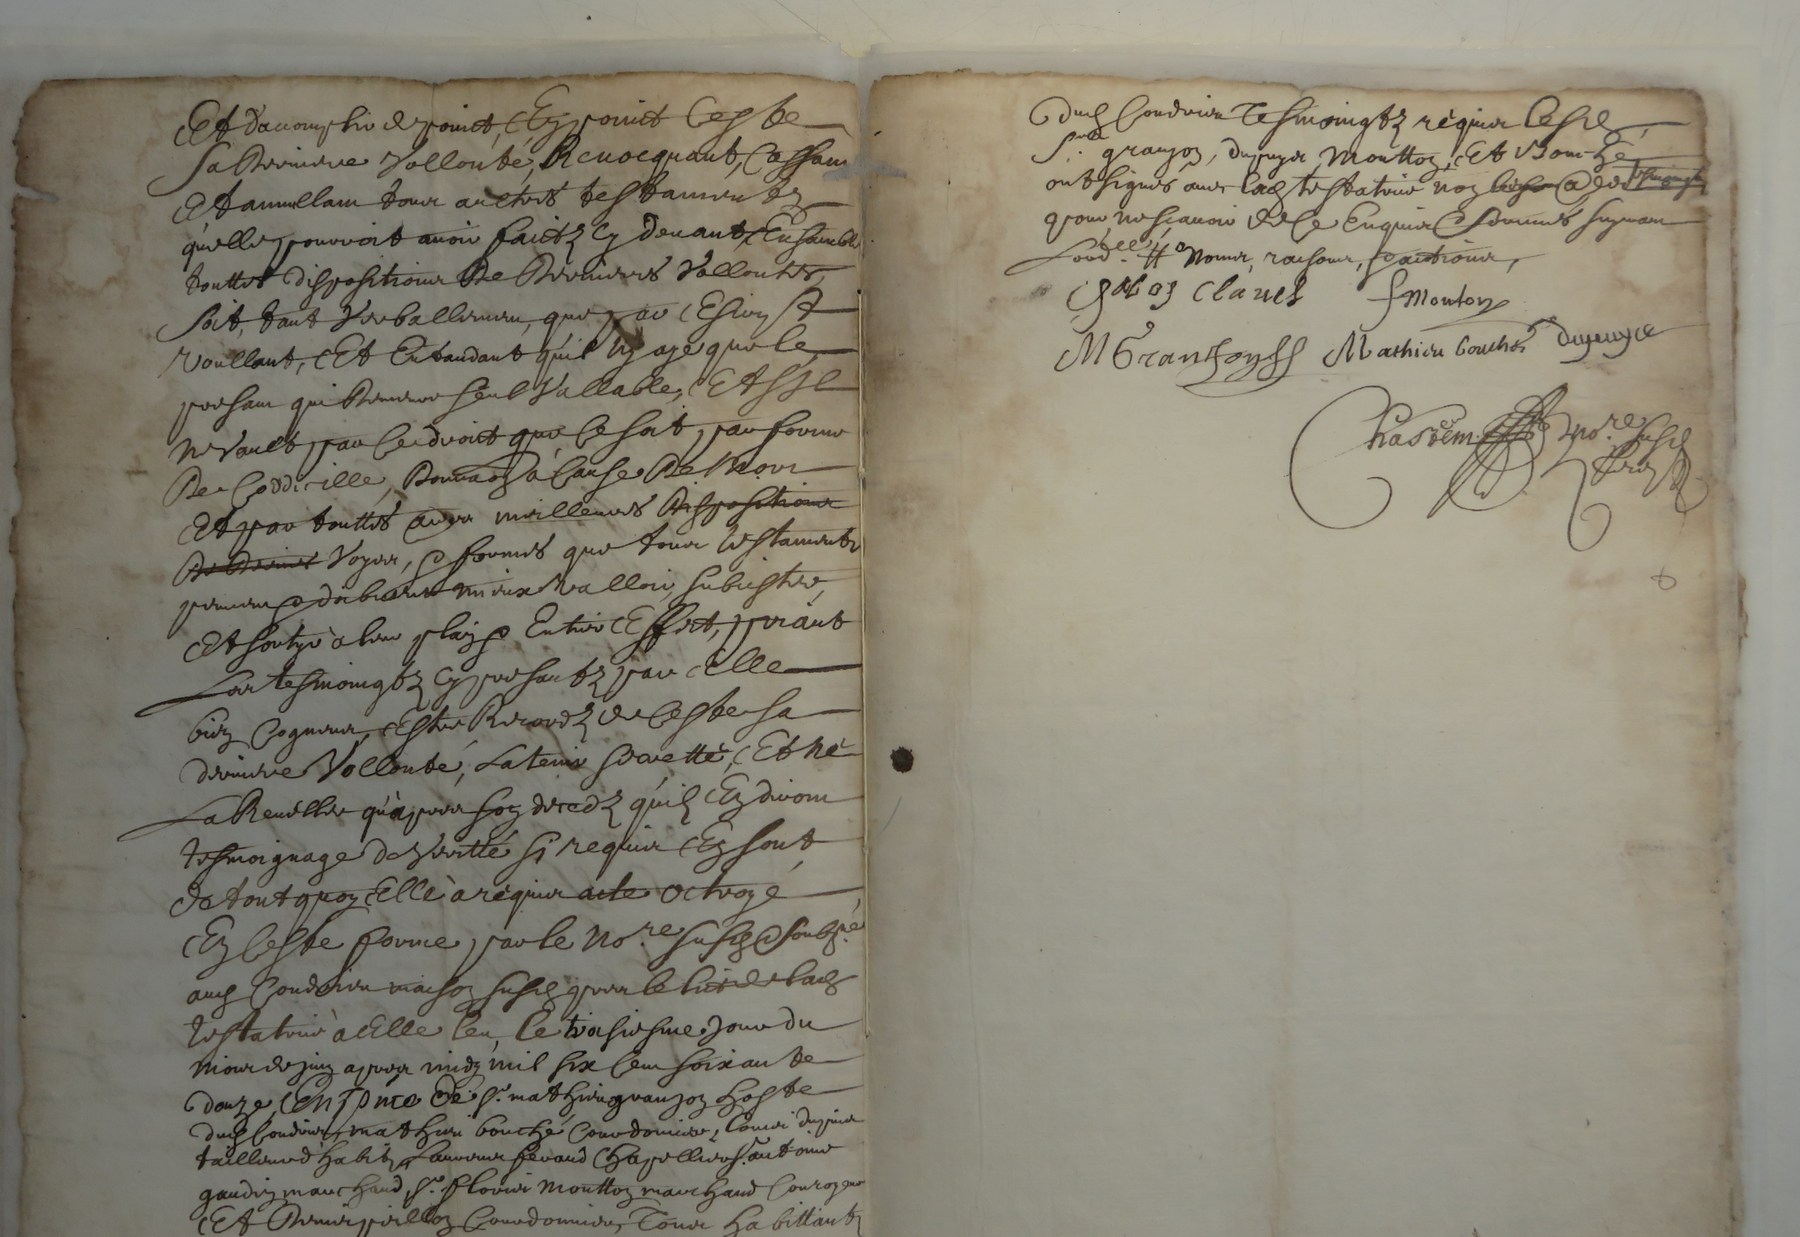 Et daccomplir de point En point Ceste
sa derniere Vollonté, Revocquant, Cassant
Et annullant tous aultres testamentz
qu'elle pourroit avoir faictz cy devant, Ensemble
touttes dispositions de dernieres Vollontes,
soit, tant Verballement, que par Escript
voullant, Et Entandant qu'il ny aye que le
presant qui demeure seul Vallable, Et s'il
ne Vault par le droict que ce soit, par forme
de Coddicille, donnaon a Cause de mort
Et par touttes aultres meilleures dispositions
de dernieres Voyes, & formes que tous testaments
peuvent & doibvent mieux valloir, subcister,
Et sortyr a leur plain & Entier Effect, priant
Les tesmoingtz cy presantz par Elle
bien Cogneus, Estre Recordz de Ceste sa
derniere Vollonté, La tenir secrette, Et ne
La Reveller qu'apres son decedz qu'ilz En diront
tesmoignage de veritté si requis En sont
de tout quoy Elle à requis acte octroyé
En Ceste forme par le no.re susd & soubz.né
aud Condrieu maison susd pres le lict de lad
testatrice à Elle leu, Le troisiesme Jour du
mois de juin apres midy mil six Cent soixante
douze, En p.nce de s.r mathieu granjon hoste
dud Condrieu, mathieu bouché Courdonnier, Dupuis
tailleur d'habitz, Laurens Chapellier s.r antoine
gaudin marchand, s.r flories Mouttoz marchand Couroyeur
Et Courdonnier, Tous habittantz
dud Condrieu Tesmoingtz requis lesd
s.rs granjon, dupuys Mouttoz, Et Bouché
ont signés avec lad testatrice non les @des tesmoingtz
pour ne sçavoir de ce Enquis & sommés suyvant
Lord.ce
Clauel f Moutoz
M Granjon Mathieu bouche dupuys
Chastem no.re susd